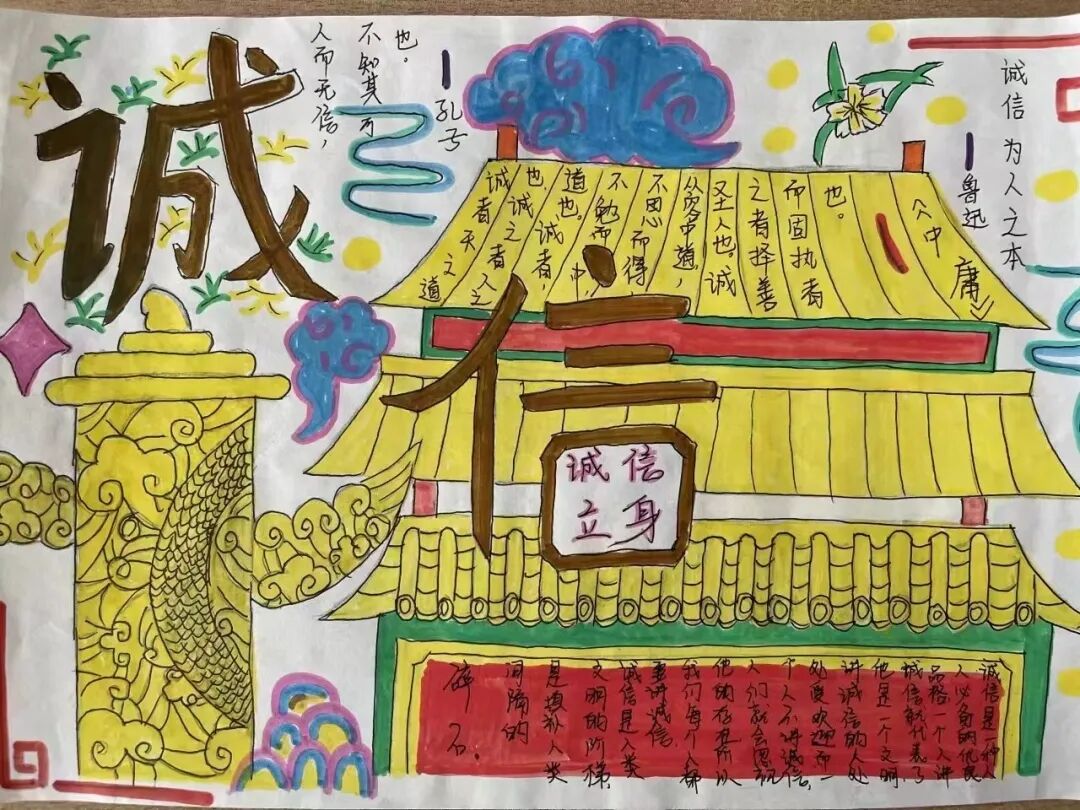 诚
信
人而无信，
不知其可
也。
孔子
诚信为人之本
鲁迅
诚者天之道
也诚之者人之
道也。诚者，
不勉而中，
不思而得
从容中道，
圣人也。诚
之者择善
而固执者
也。
《中庸》
诚信
立身
诚信是一种人
人必备的优良
品格一个人讲
诚信就代表了
他是一个文明
讲诚信的人处
处受欢迎而一
个人不讲诚信，
人们就会忽视
他的存在所以
我们每个人都
要讲诚信，
诚信是人类
文明的阶梯
是填补人类
间隔的
碎石。